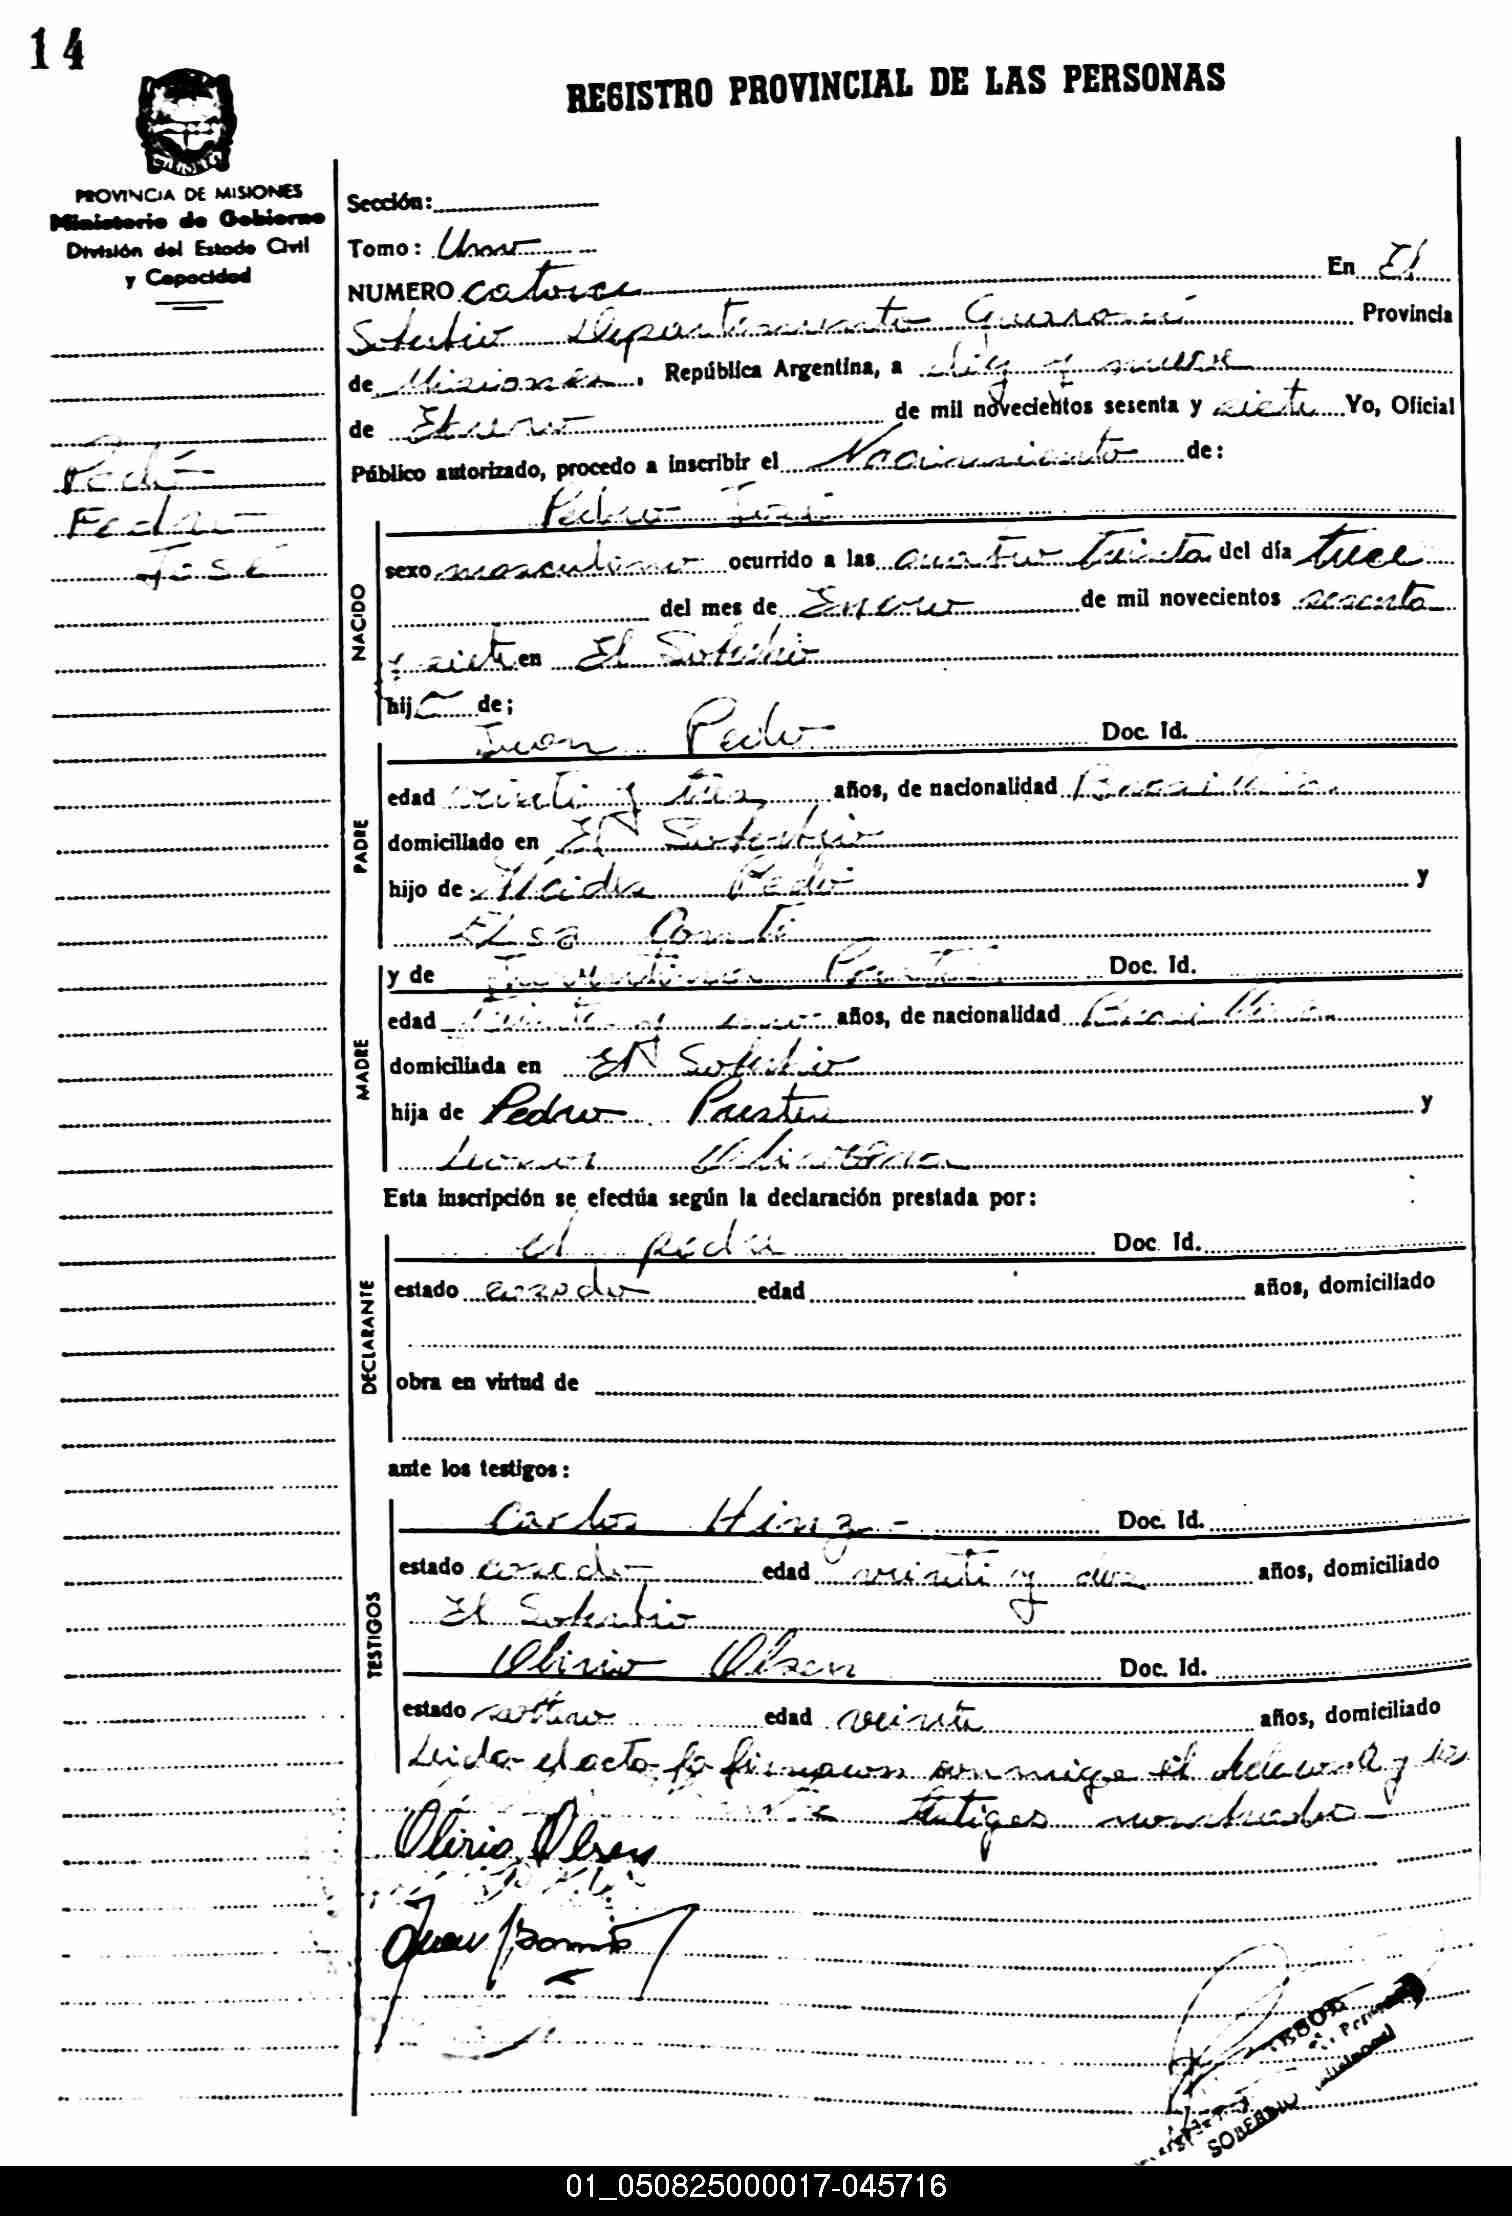 14
REGISTRO PROVINCIAL DE LAS PERSONAS
PROVINCIA DE MISIONES
Ministerio de Gobierno
División del Estado Civil
y Capacidad
Sección:
Tomo: Uno
NUMERO catorce En El
Soberbio Departamento Guaraní Provincia
de Misiones, República Argentina, a diez y nueve
de Enero de mil novecientos sesenta y siete Yo, Oficial
Público autorizado, procedo a inscribir el Nacimiento de:
José
Pedro José
NACIDO
sexo masculino ocurrido a las cuatro treinta del día trece
del mes de Enero de mil novecientos sesenta
y siete en El Soberbio
hij de;
PADRE
Juan Pedro Doc. Id.
edad veinti y tres años, de nacionalidad Brasilera
domiciliado en El Soberbio
hijo de y
Elsa
MADRE
y de Doc. Id.
edad años, de nacionalidad Brasilera
domiciliada en El Soberbio
hija de Pedro y
Esta inscripción se efectúa según la declaración prestada por:
DECLARANTE
el padre Doc. Id.
estado casado edad años, domiciliado
obra en virtud de
ante los testigos:
TESTIGOS
Carlos Hinz - Doc. Id.
estado casado edad veinti y dos años, domiciliado
El Soberbio
Olirio Olsen Doc. Id.
estado soltero edad veinte años, domiciliado
Leida el acta la firmaron conmigo el declarante y los
testigos nombrados
Olirio Olsen
Juan
SOBERBIO
01_050825000017-045716